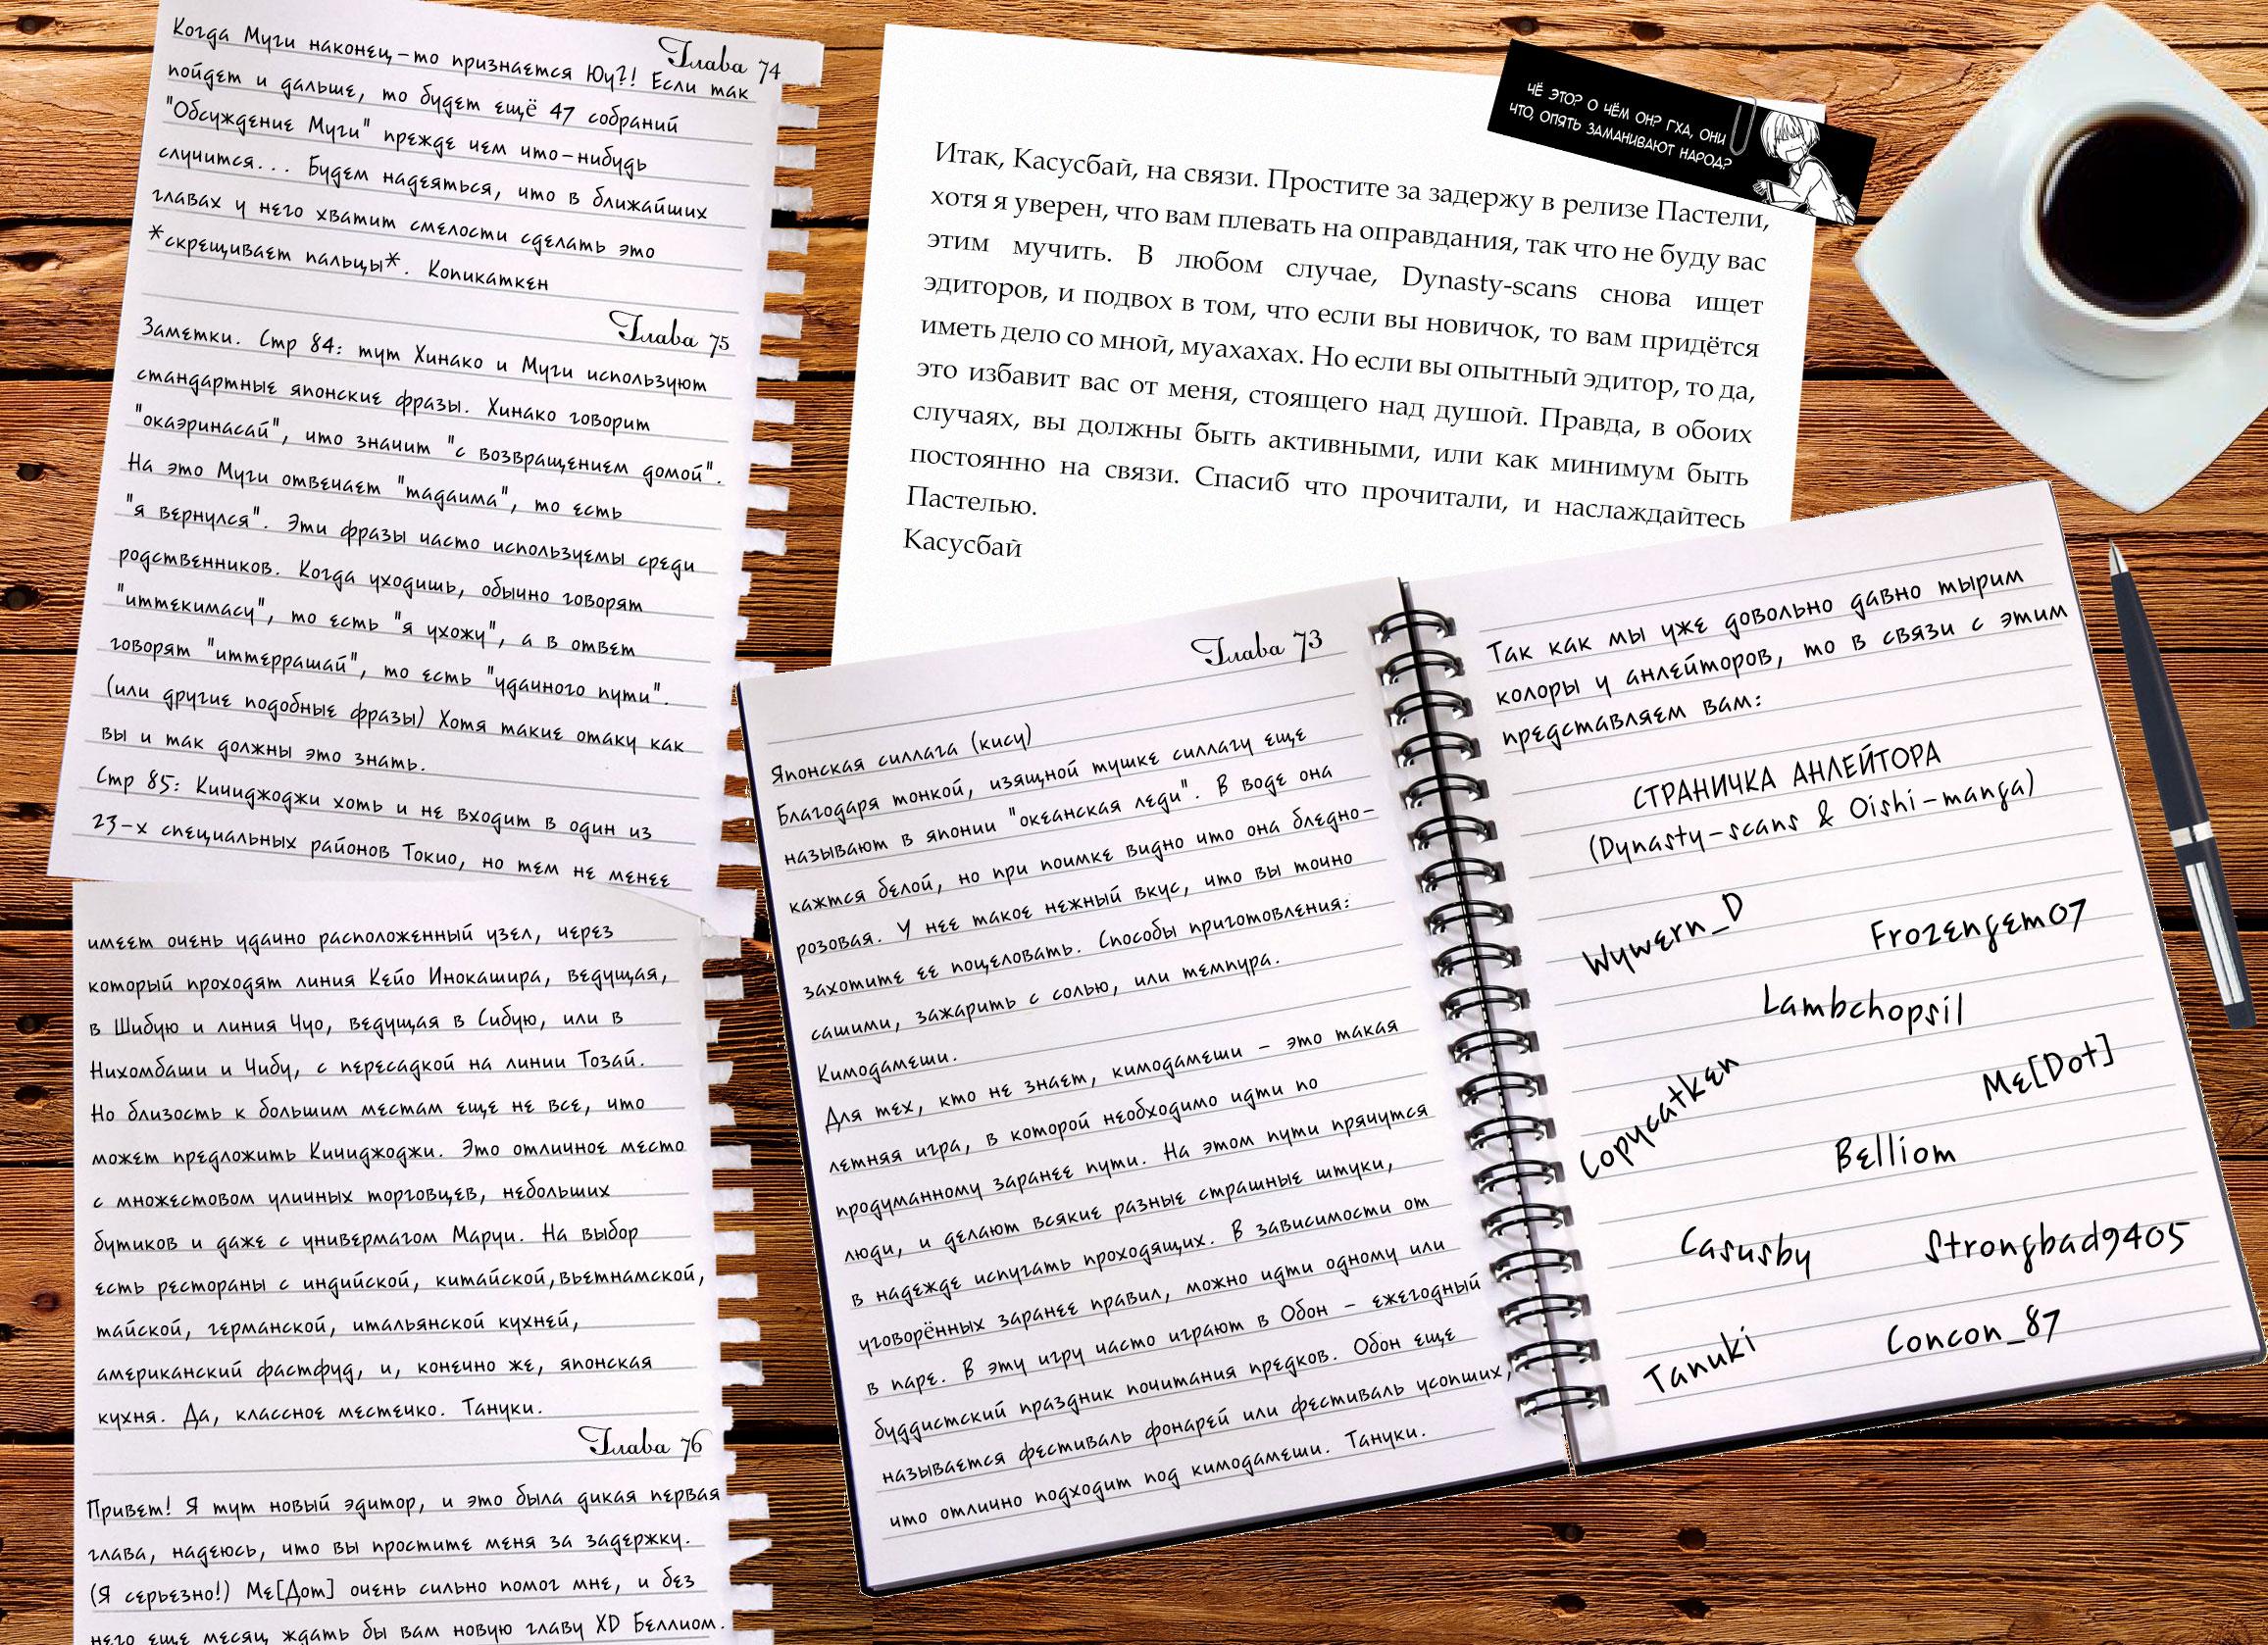 Глава 74
Когда Муги наконец-то признается Юу?! Если так
пойдет и дальше, то будет ещё 47 собраний
"Обсуждение Муги" прежде чем что-нибудь
случится... Будем надеяться, что в ближайших
главах у него хватит смелости сделать это
*скрещивает пальцы*. Копикаткен
Глава 75
Заметки. Стр 84: тут Хинако и Муги используют
стандартные японские фразы. Хинако говорит
"окаэринасай", что значит "с возвращением домой".
На это Муги отвечает "тадаима", то есть
"я вернулся". Эти фразы часто используемы среди
родственников. Когда уходишь, обычно говорят
"иттекимасу", то есть "я ухожу", а в ответ
говорят "иттеррашай", то есть "удачного пути".
(или другие подобные фразы) Хотя такие отаку как
вы и так должны это знать.
Стр 85: Кичиджоджи хоть и не входит в один из
23-х специальных районов Токио, но тем не менее
имеет очень удачно расположенный узел, через
который проходят линия Кейо Инокашира, ведущая,
в Шибую и линия Чуо, ведущая в Сибую, или в
Нихомбаши и Чибу, с пересадкой на линии Тозай.
Но близость к большим местам еще не все, что
может предложить Кичиджоджи. Это отличное место
с множестовом уличных торговцев, небольших
бутиков и даже с универмагом Маруи. На выбор
есть рестораны с индийской, китайской,вьетнамской,
тайской, германской, итальянской кухней,
американский фастфуд, и, конечно же, японская
кухня. Да, классное местечко. Тануки.
Глава 76
Привет! Я тут новый эдитор, и это была дикая первая
глава, надеюсь, что вы простите меня за задержку.
(Я серьезно!) Ме[Дот] очень сильно помог мне, и без
него еще месяц ждать бы вам новую главу XD Беллиом.
ЧЁ ЭТО? О ЧЁМ ОН? ГХА, ОНИ
ЧТО, ОПЯТЬ ЗАМАНИВАЮТ НАРОД?
Итак, Касусбай, на связи. Простите за задержу в релизе Пастели,
хотя я уверен, что вам плевать на оправдания, так что не буду вас
этим мучить. В любом случае, Dynasty-scans снова ищет
эдиторов, и подвох в том, что если вы новичок, то вам придётся
иметь дело со мной, муахахах. Но если вы опытный эдитор, то да,
это избавит вас от меня, стоящего над душой. Правда, в обоих
случаях, вы должны быть активными, или как минимум быть
постоянно на связи. Спасиб что прочитали, и наслаждайтесь
Пастелью.
Касусбай
Глава 73
Японская силлага (кису)
Благодаря тонкой, изящной тушке силлагу еще
называют в японии "океанская леди". В воде она
кажтся белой, но при поимке видно что она бледно-
розовая. У нее такое нежный вкус, что вы точно
захотите ее поцеловать. Способы приготовления:
сашими, зажарить с солью, или темпура.
Кимодамеши.
Для тех, кто не знает, кимодамеши - это такая
летняя игра, в которой необходимо идти по
продуманному заранее пути. На этом пути прячутся
люди, и делают всякие разные страшные штуки,
в надежде испугать проходящих. В зависимости от
уговорённых заранее правил, можно идти одному или
в паре. В эту игру часто играют в Обон - ежегодный
буддистский праздник почитания предков. Обон еще
называется фестиваль фонарей или фестиваль усопших,
что отлично подходит под кимодамеши. Тануки.
Так как мы уже довольно давно тырим
колоры у анлейторов, то в связи с этим
представляем вам:
СТРАНИЧКА АНЛЕЙТОРА
(Dynasty-scans & Oishi-manga)
Wywern_D
Frozengem07
Lambchopsil
Copycatken
Me[Dot]
Belliom
Casusby
Strongbad9405
Tanuki
Concon_87